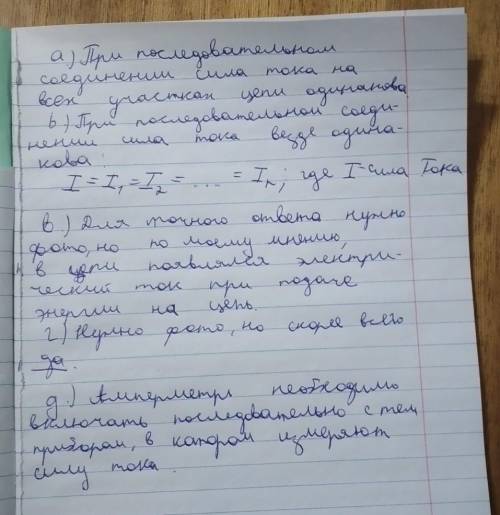 а) При последовательном
соединении сила тока на
всех участках цепи одинакова
b) При последовательной соеди-
нении сила тока везде одина-
кова:
I = I₁ = I₂ = .... = Iₙ; где I-сила Тока
в.) Для точного ответа нужно
фото, но по моему мнению,
в цепи появлялся электри-
ческий ток при подаче
энергии на цепь.
г.) Нужно фото, но скорее всего
да.
д.) Амперметры необходимо
включать последовательно с тем
прибором, в котором измеряют
силу тока.